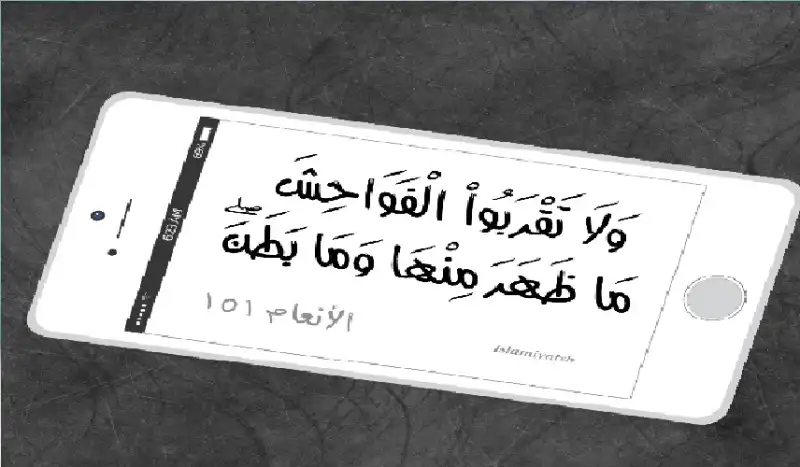 وَلَا تَقْرَبُوا۟ الْفَوَاحِشَ
مَا ظَهَرَ مِنْهَا وَمَا بَطَنَ ۖ
الأنعام ١٥١
Islamiyateh
69%